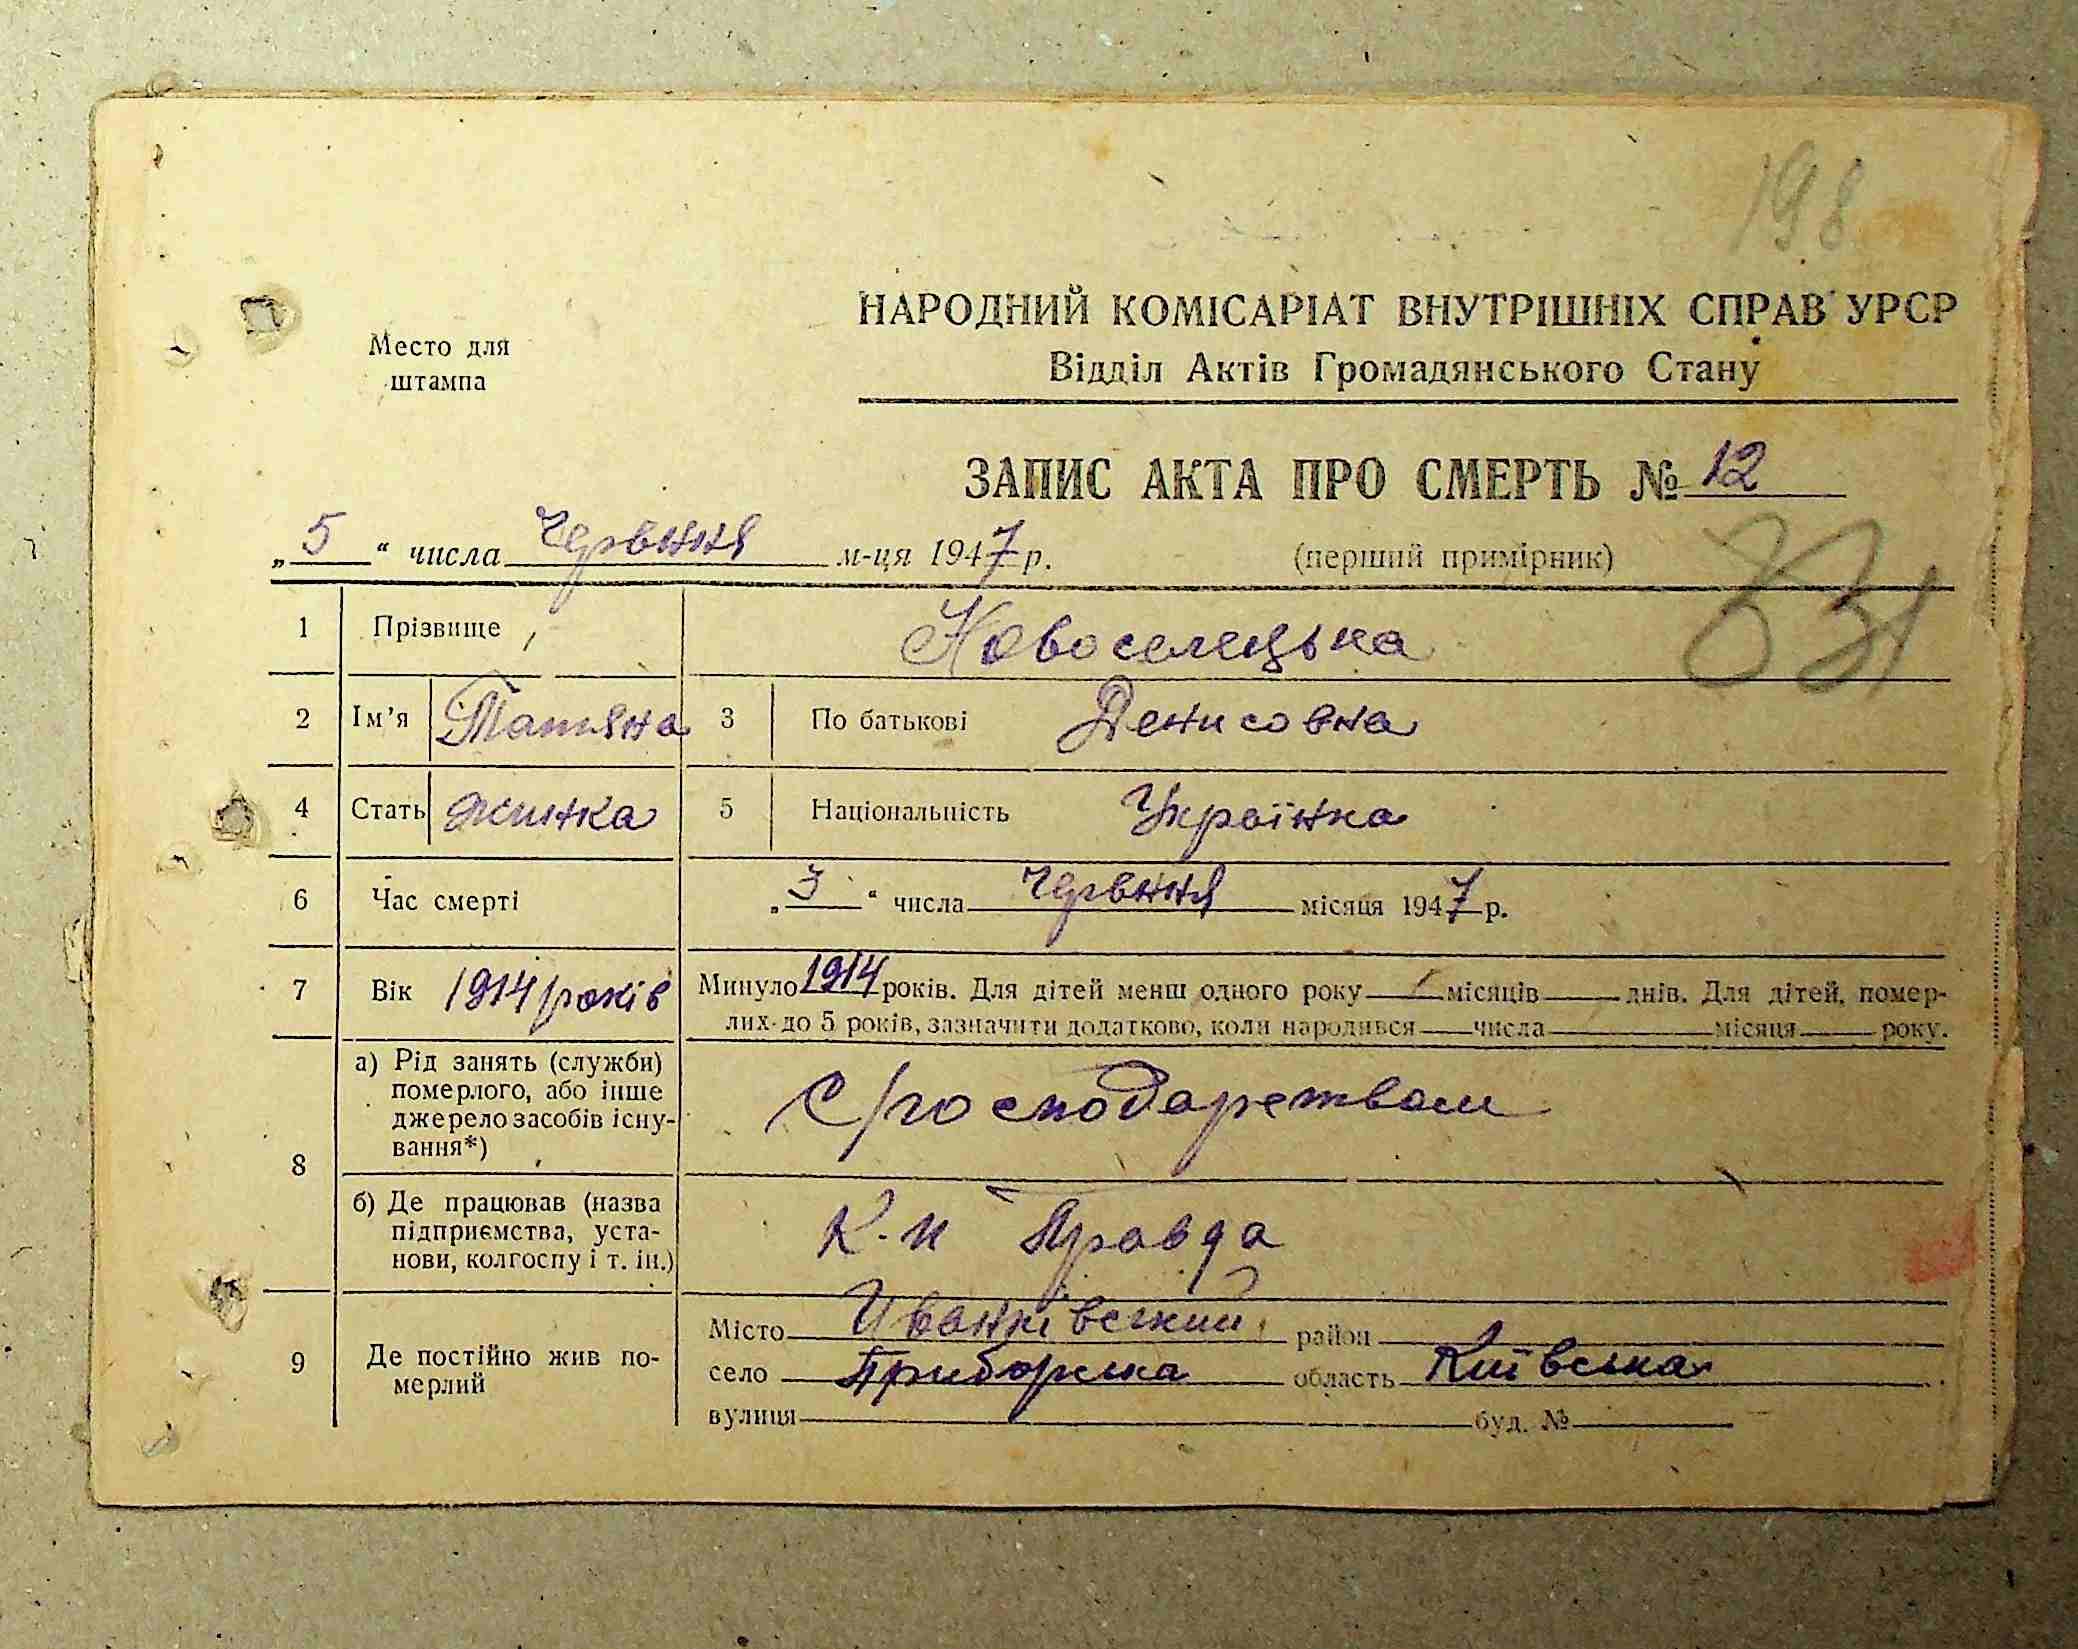 198
НАРОДНИЙ КОМІСАРІАТ ВНУТРІШНІХ СПРАВ УРСР
Место для
штампа
Відділ Актів Громадянського Стану
ЗАПИС АКТА ПРО СМЕРТЬ № 12
„ 5 “ числа Червння м-ця 1947 р. (перший примірник)
1 Прізвище Новоселецька
2 Ім’я Татьяна 3 По батькові Денисовна
4 Стать жинка 5 Національність Українка
6 Час смерті „ 3 “ числа Червння місяця 1947 р.
7 Вік 1914 років Минуло 1914 років. Для дітей менш одного року місяців днів. Для дітей, помер-
лих до 5 років, зазначити додатково, коли народився числа місяця року.
8 а) Рід занять (служби)
померлого, або інше
джерело засобів існу-
вання*)
С/господарством
б) Де працював (назва
підприємства, уста-
нови, колгоспу і т. ін.)
К-п Правда
9 Де постійно жив по-
мерлий
Місто Иванківський район
село Приборська область Київська
вулиця буд. №